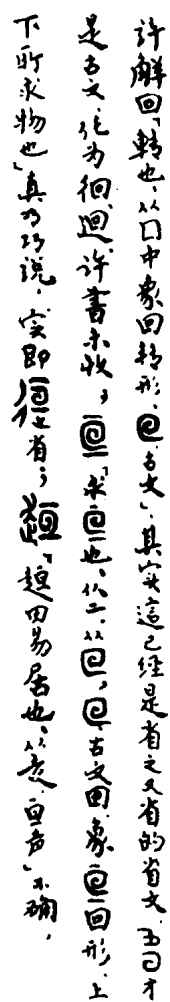 許解回「轉也、从囗中象回轉形、𡇌古文」、其实這已經是省之又省的省文、𡆥才
是古文、化为徊、迴、许書未收；亘「求亘也、从二、从𡇌、𡇌古文回、象亘回形、上
下所求物也」真乃巧説、实即𢓴之省；趄「趄田易居也、从走、亘声」不确，